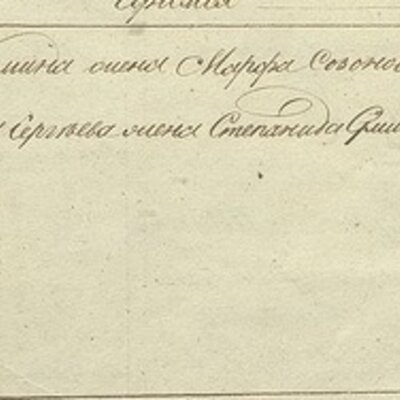 мина жена Марфа Созонов
Сергѣева жена Степанида